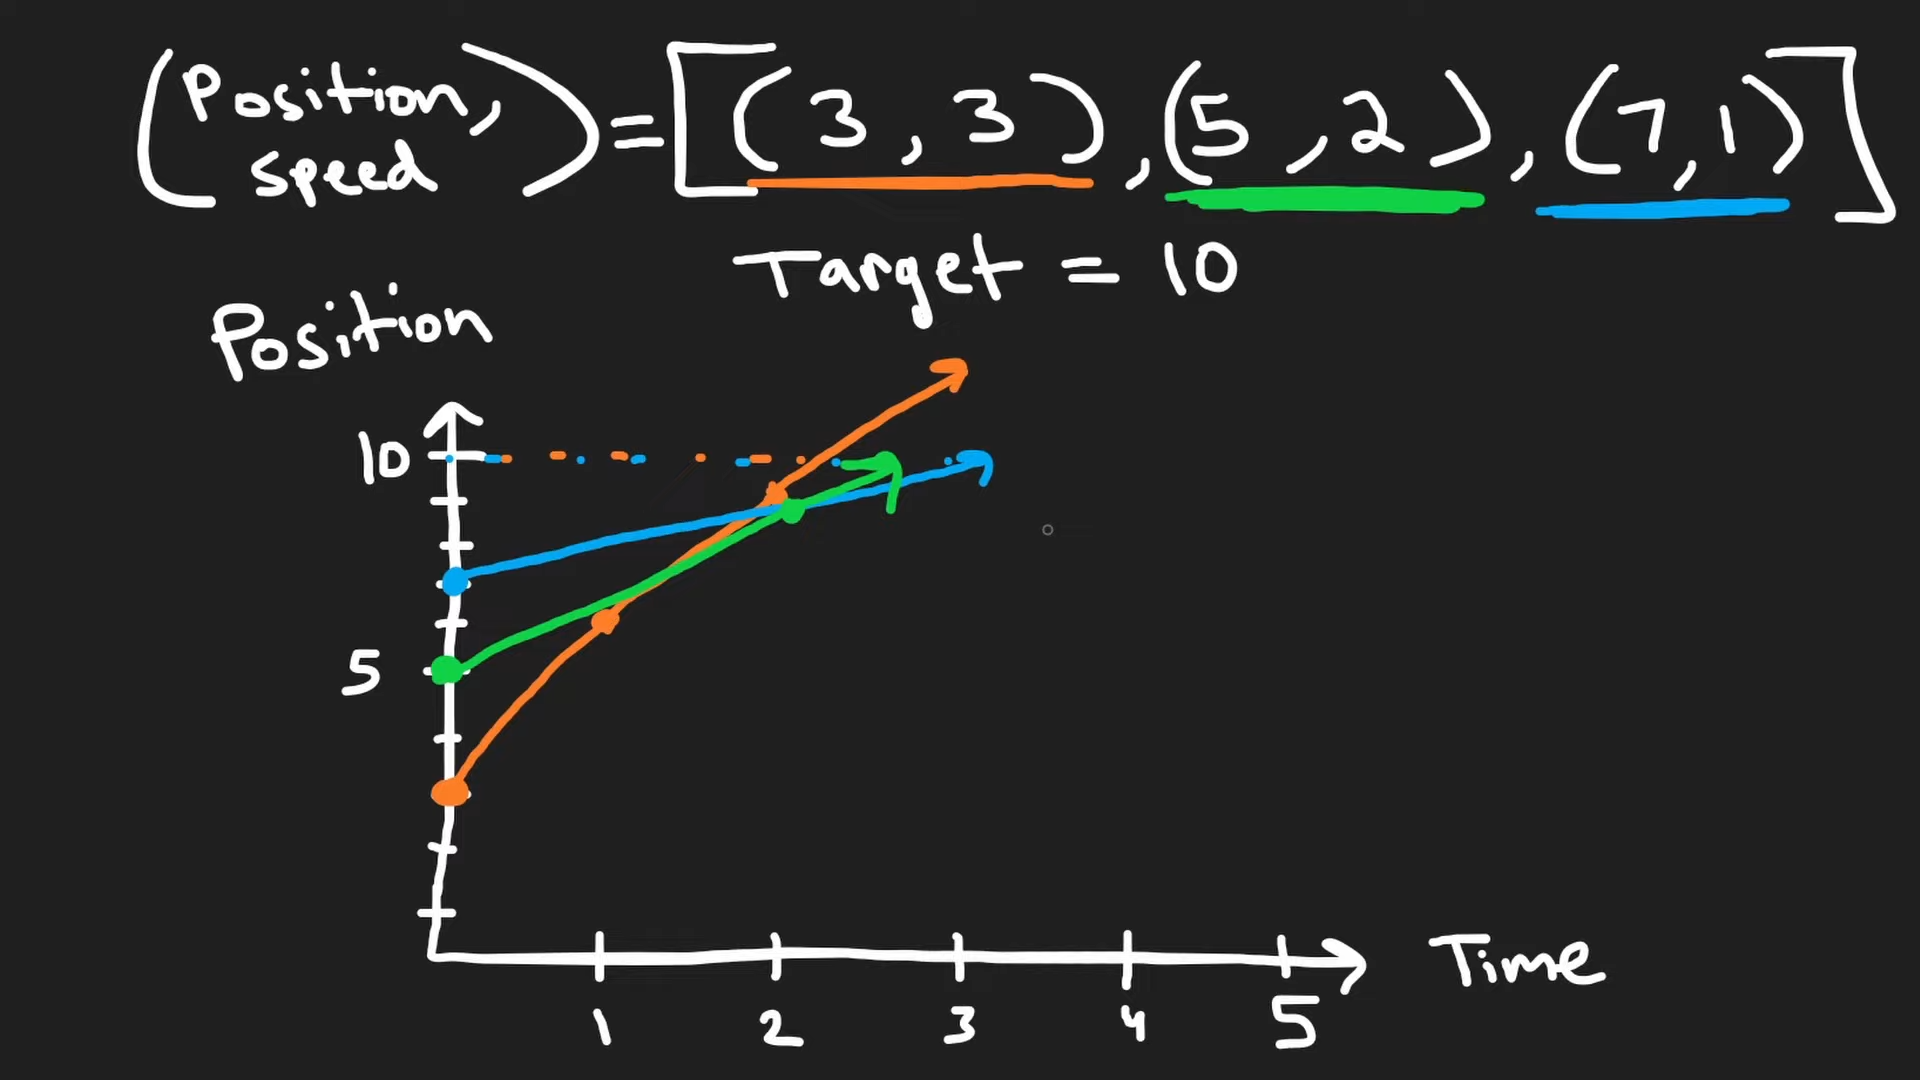 (Position, speed) = [(3, 3), (5, 2), (7, 1)]
Target = 10
Position
10
5
Time
1 2 3 4 5